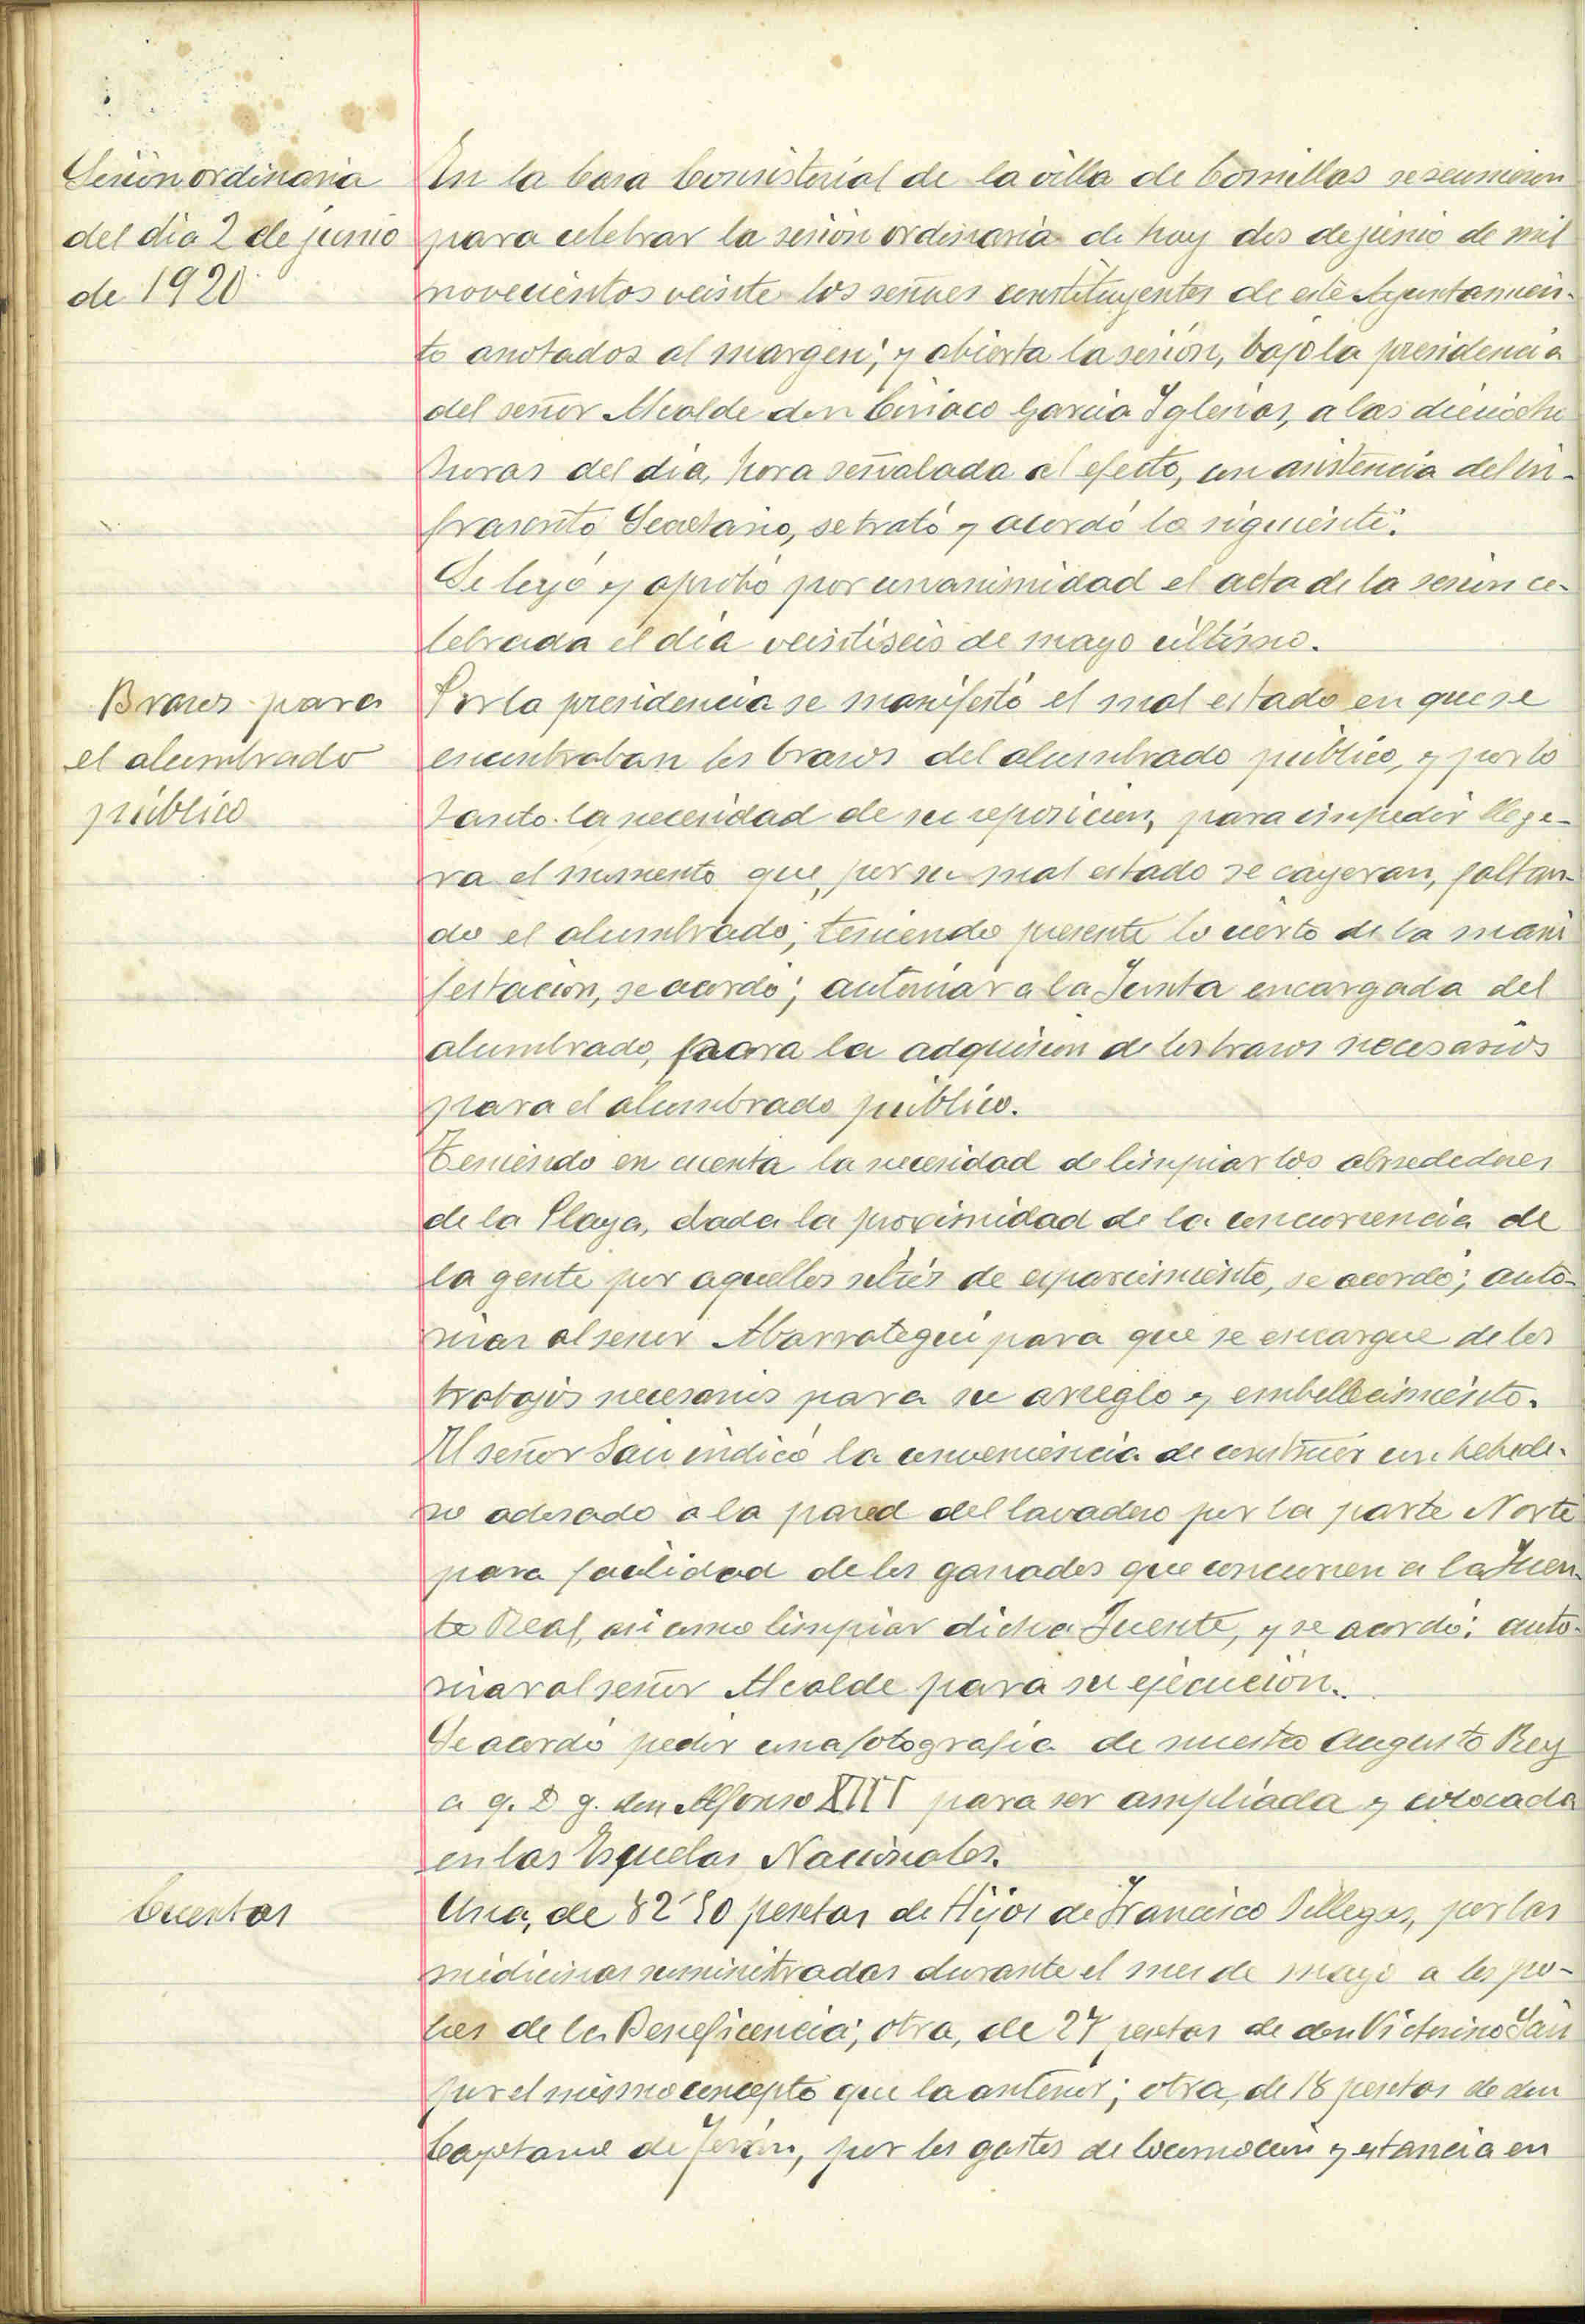 Sesión ordinaria
del dia 2 de junio
de 1920
En la Casa Consistorial de la villa de Comillas se reunieron
para celebrar la sesión ordinaria de hoy dos de junio de mil
novecientos veinte los señores constituyentes de este Ayuntamien-
to anotados al margen; y abierta la sesión, bajo la presidencia
del señor Alcalde don Ciriaco Garcia Iglesias, a las dieciocho
horas del dia, hora señalada al efecto, con asistencia del in-
frascrito Secretario, se trató y acordó lo siguiente:
Se leyó y aprobó por unanimidad el acta de la sesión ce-
lebrada el dia veintiseis de mayo último.
Brazos para
el alumbrado
público
Por la presidencia se manifestó el mal estado en que se
encontraban los brazos del alumbrado público, y por lo
tanto la necesidad de su reposición, para impedir llega-
ra el momento que, por su mal estado se cayeran, faltan-
do el alumbrado; teniendo presente lo cierto de la mani
festación, se acordó; autorizar a la Junta encargada del
alumbrado, para la adquisión de los brazos necesarios
para el alumbrado público.
Teniendo en cuenta la necesidad de limpiar los alrededores
de la Playa, dada la proximidad de la concurrencia de
la gente por aquellos sitios de esparcimiento, se acordó; auto-
rizar al señor Abarrategui para que se encargue de los
trabajos necesarios para su arreglo y embellecimiento.
El señor San indicó la conveniencia de construir un bebede-
ro adosado a la pared del lavadero por la parte Norte
para facilidad de los ganados que concurren a la Fuen-
te Real, asi como limpiar dicha Fuente, y se acordó: auto-
rizar al señor Alcalde para su ejecución.
Se acordó pedir una fotografia de nuestro Augusto Rey
a q. D. g. don Alfonso XIII para ser ampliada y colocada
en las Esquelas Nacionales.
Cuentas
Una, de 82'90 pesetas de Hijos de Francisco Villegas, por las
medicinas suministradas durante el mes de mayo a los po-
bres de la Beneficencia; otra, de 27 pesetas de don Victorino San
por el mismo concepto que la anterior; otra, de 18 pesetas de don
Cayetano de Terán, por los gastos de locomoción y estancia en